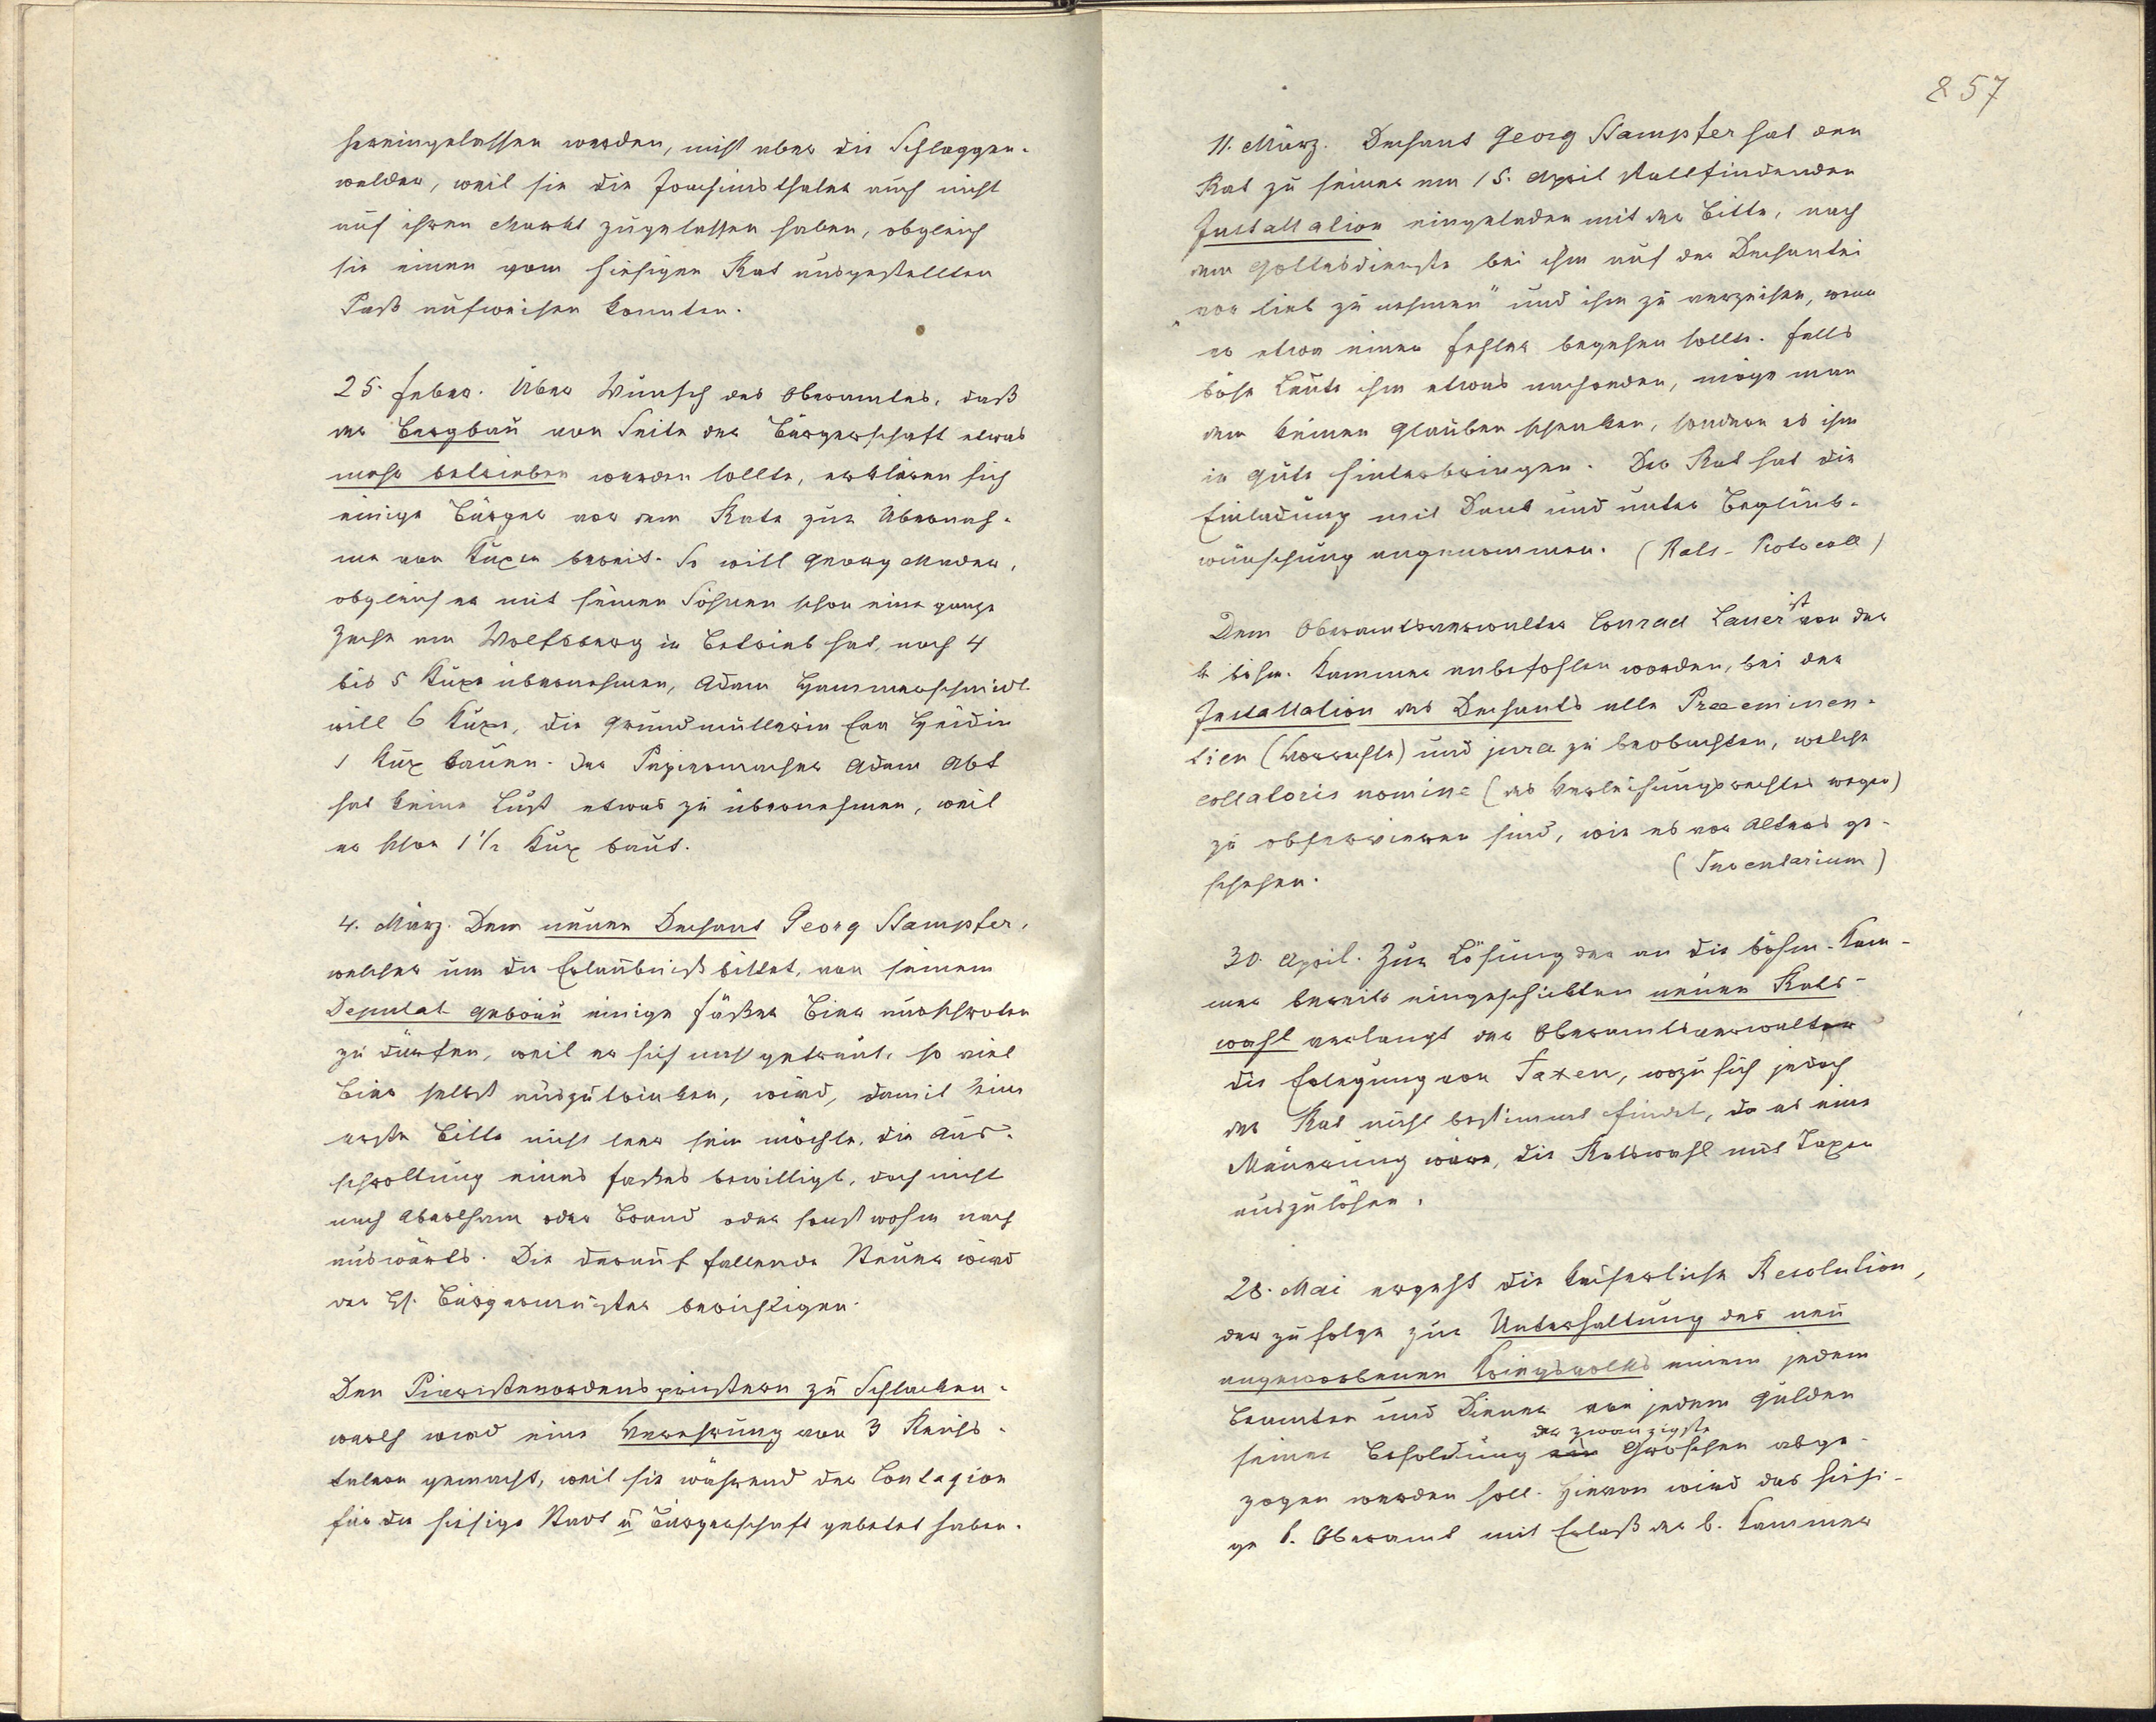 hereingelassen werden, nicht aber die Schlaggen-
walder, weil sie die Joachimsthaler auch nicht
auf ihren Markt zugelassen haben, obgleich
sie einen vom hiesigen Rat ausgestellten
Paß aufweisen konnten.
25. Feber. Über Wunsch des Oberamtes, daß
der Bergbau von Seite der Bürgerschaft etwas
mehr betrieben werden sollte, erklären sich
einige Bürger vor dem Rate zur Übernah-
me von Kuxen bereit. So will Georg Mader,
obgleich er mit seinen Söhnen schon eine ganze
Zeche am Wolfsberg in Betrieb hat, noch 4
bis 5 Kuxe übernehmen, Adam Hammerschmidt
will 6 Kuxe, die Grundmüllerin Eva Heidin
1 Kux bauen. Der Papiermacher Adam Abt
hat keine Lust etwas zu übernehmen, weil
er schon 1 1/2 Kux baut.
4. März. Dem neuen Dechant Georg Stampfer,
welcher um die Erlaubniß bittet, von seinem
Deputat gebräu einige Fäßer Bier ausschroten
zu dürfen, weil er sich nicht getraut, so viel
Bier selbst auszutrinken, wird, damit seine
erste Bitte nicht leer sein möchte, die Aus-
schrottung eines Faßes bewilligt, doch nicht
nach Abertham oder Brand oder sonst wohin nach
auswärts. Die darauf fallende Steuer wird
der H. Bürgermeister berichtigen.
Den Piaristenordenspriestern zu Schlacken-
werth wird eine Verehrung von 3 Reichs-
talern gemacht, weil sie während der Contagion
für die hiesige Stadt u Bürgerschaft gebetet haben.
857
11. März. Dechant Georg Stampfer hat den
Rat zu seiner am 15. April stattfindenden
Installation eingeladen mit der Bitte, nach
dem Gottesdienste bei ihm auf der Dechantei
„vor lieb zu nehmen" und ihm zu verzeihen, wenn
er etwa einen Fehler begehen sollte. Falls
böse Leute ihm etwas nachreden, möge man
dem keinen Glauben schenken, sondern es ihm
in Güte hinterbringen. Der Rat hat die
Einladung mit Dank und unter Beglück-
wünschung angenommen. (Rats-Protocoll)
Dem Oberamtsverwalter Conrad Lauer ist von der
k. böhm. Kammer anbefohlen worden, bei der
Installation des Dechants alle Praeeminen-
tien (Vorrechte) und jura zu beobachten, welche
collatoris nomine (des Verleihungsrechtes wegen)
zu observieren sind, wie es vor Alters ge-
schehen. (Inventarium)
30. April. Zur Lösung der an die böhm. Kam-
mer bereits eingeschickten neuen Rats-
wahl verlangt der Oberamtsverwalter
die Erlegung von Taxen, wozu sich jedoch
der Rat nicht bestimmt findet, da es eine
Neuerung wäre, die Ratswahl mit Taxen
auszulösen.
28. Mai ergeht die kaiserliche Resolution,
der zu folge zur Unterhaltung des neu
angeworbenen Kriegsvolks einem jedem
Beamten und Diener von jedem Gulden
seiner Besoldung ein der zwanzigste Groschen abge-
zogen werden soll. Hievon wird das hiesi-
ge k. Oberamt mit Erlaß der b. Kammer